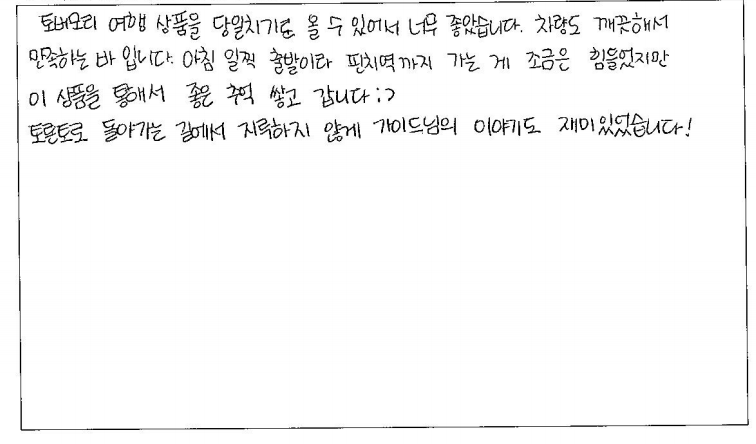 토버모리 여행 상품을 당일치기로 올 수 있어서 너무 좋았습니다. 차량도 깨끗해서
만족하는 바 입니다. 아침 일찍 출발이라 핀치역까지 가는 게 조금은 힘들었지만
이 상품을 통해서 좋은 추억 쌓고 갑니다 :>
토론토로 돌아가는 길에서 지루하지 않게 가이드님의 이야기도 재미있었습니다!